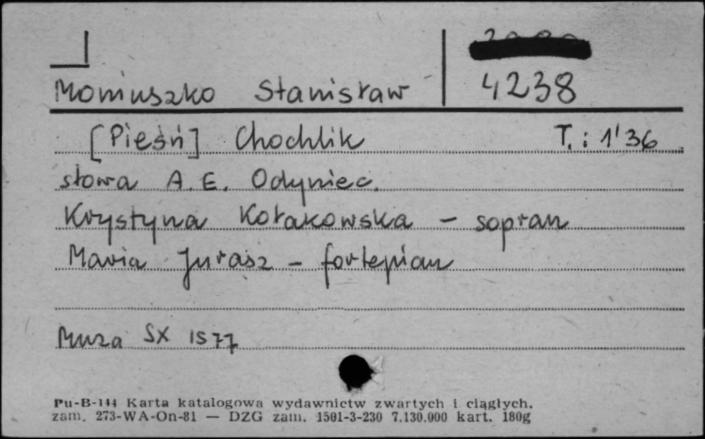 Moniuszko Stanisław 4238
[Pieśń] Chochlik T.: 1'36
słowa A.E. Odyniec.
Krystyna Kołakowska - sopran
Maria Jurasz - fortepian
Muza SX 1577
Pu-B-144 Karta katalogowa wydawnictw zwartych i ciągłych.
zam. 273-WA-On-81 — DZG zam. 1501-3-230 7.130.000 kart. 180g